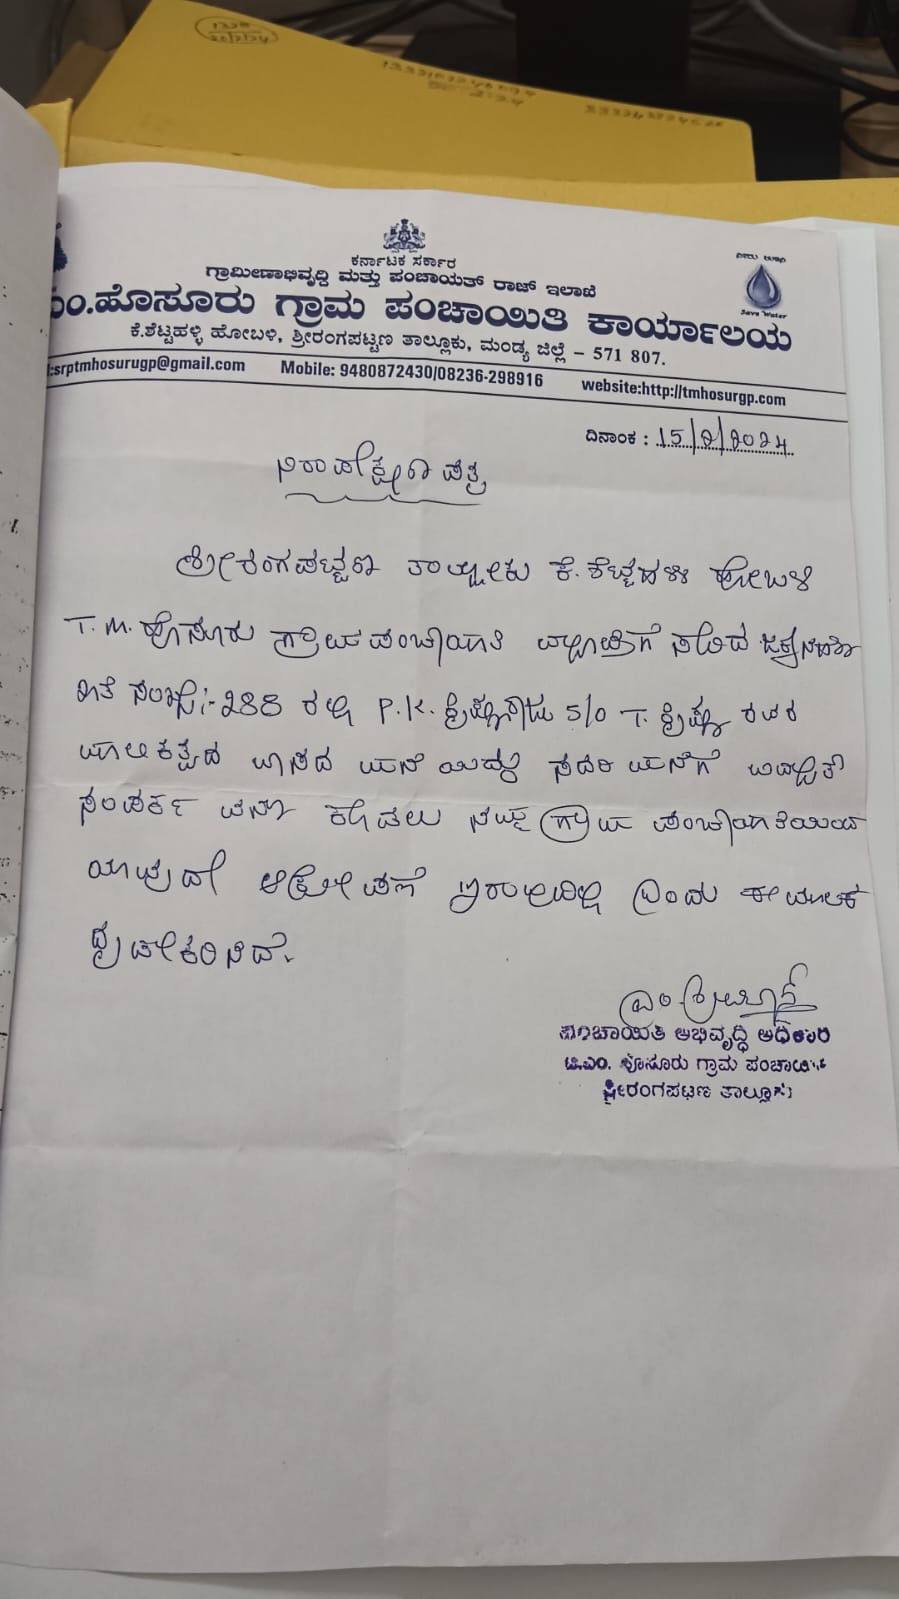 ಕರ್ನಾಟಕ ಸರ್ಕಾರ
ಗ್ರಾಮೀಣಾಭಿವೃದ್ಧಿ ಮತ್ತು ಪಂಚಾಯತ್ ರಾಜ್ ಇಲಾಖೆ
ಎಂ.ಹೊಸೂರು ಗ್ರಾಮ ಪಂಚಾಯಿತಿ ಕಾರ್ಯಾಲಯ
Save Water
ಕೆ.ಶೆಟ್ಟಹಳ್ಳಿ ಹೋಬಳಿ, ಶ್ರೀರಂಗಪಟ್ಟಣ ತಾಲ್ಲೂಕು, ಮಂಡ್ಯ ಜಿಲ್ಲೆ - 571 807.
:srptmhosurugp@gmail.com Mobile: 9480872430/08236-298916 website:http://tmhosurgp.com
ದಿನಾಂಕ : 15/2/2024
ನಿರಾಪೇಕ್ಷಣಾ ಪತ್ರ
ಶ್ರೀರಂಗಪಟ್ಟಣ ತಾಲ್ಲೂಕು ಕೆ.ಶೆಟ್ಟಹಳ್ಳಿ ಹೋಬಳಿ
T.M.ಹೊಸೂರು ಗ್ರಾಮ ಪಂಚಾಯಿತಿ ವ್ಯಾಪ್ತಿಗೆ ಸೇರಿದ
ಖಾತೆ ಸಂಖ್ಯೆ:-288 ರಲ್ಲಿ P.K. S/O T. ಕೃಷ್ಣ ರವರ
ಮಾಲಿಕತ್ವದ ವಾಸದ ಮನೆಯಿದ್ದು ಸದರಿ ಮನೆಗೆ ವಿದ್ಯುತ್
ಸಂಪರ್ಕ ನೀಡಲು ನಮ್ಮ ಗ್ರಾಮ ಪಂಚಾಯಿತಿಯಿಂದ
ಯಾವುದೇ ಆಕ್ಷೇಪಣೆ ಇರುವುದಿಲ್ಲ ಎಂದು ಈ ಮೂಲಕ
ದೃಢೀಕರಿಸಿದೆ.
ಪಂಚಾಯಿತಿ ಅಭಿವೃದ್ಧಿ ಅಧಿಕಾರಿ
ಟಿ.ಎಂ. ಹೊಸೂರು ಗ್ರಾಮ ಪಂಚಾಯಿತಿ
ಶ್ರೀರಂಗಪಟ್ಟಣ ತಾಲ್ಲೂಕು